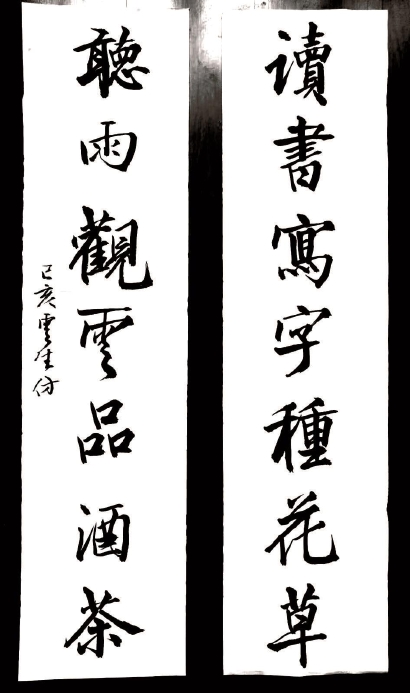 讀書寫字種花草
聽雨觀雲品酒茶
己亥雲生仿